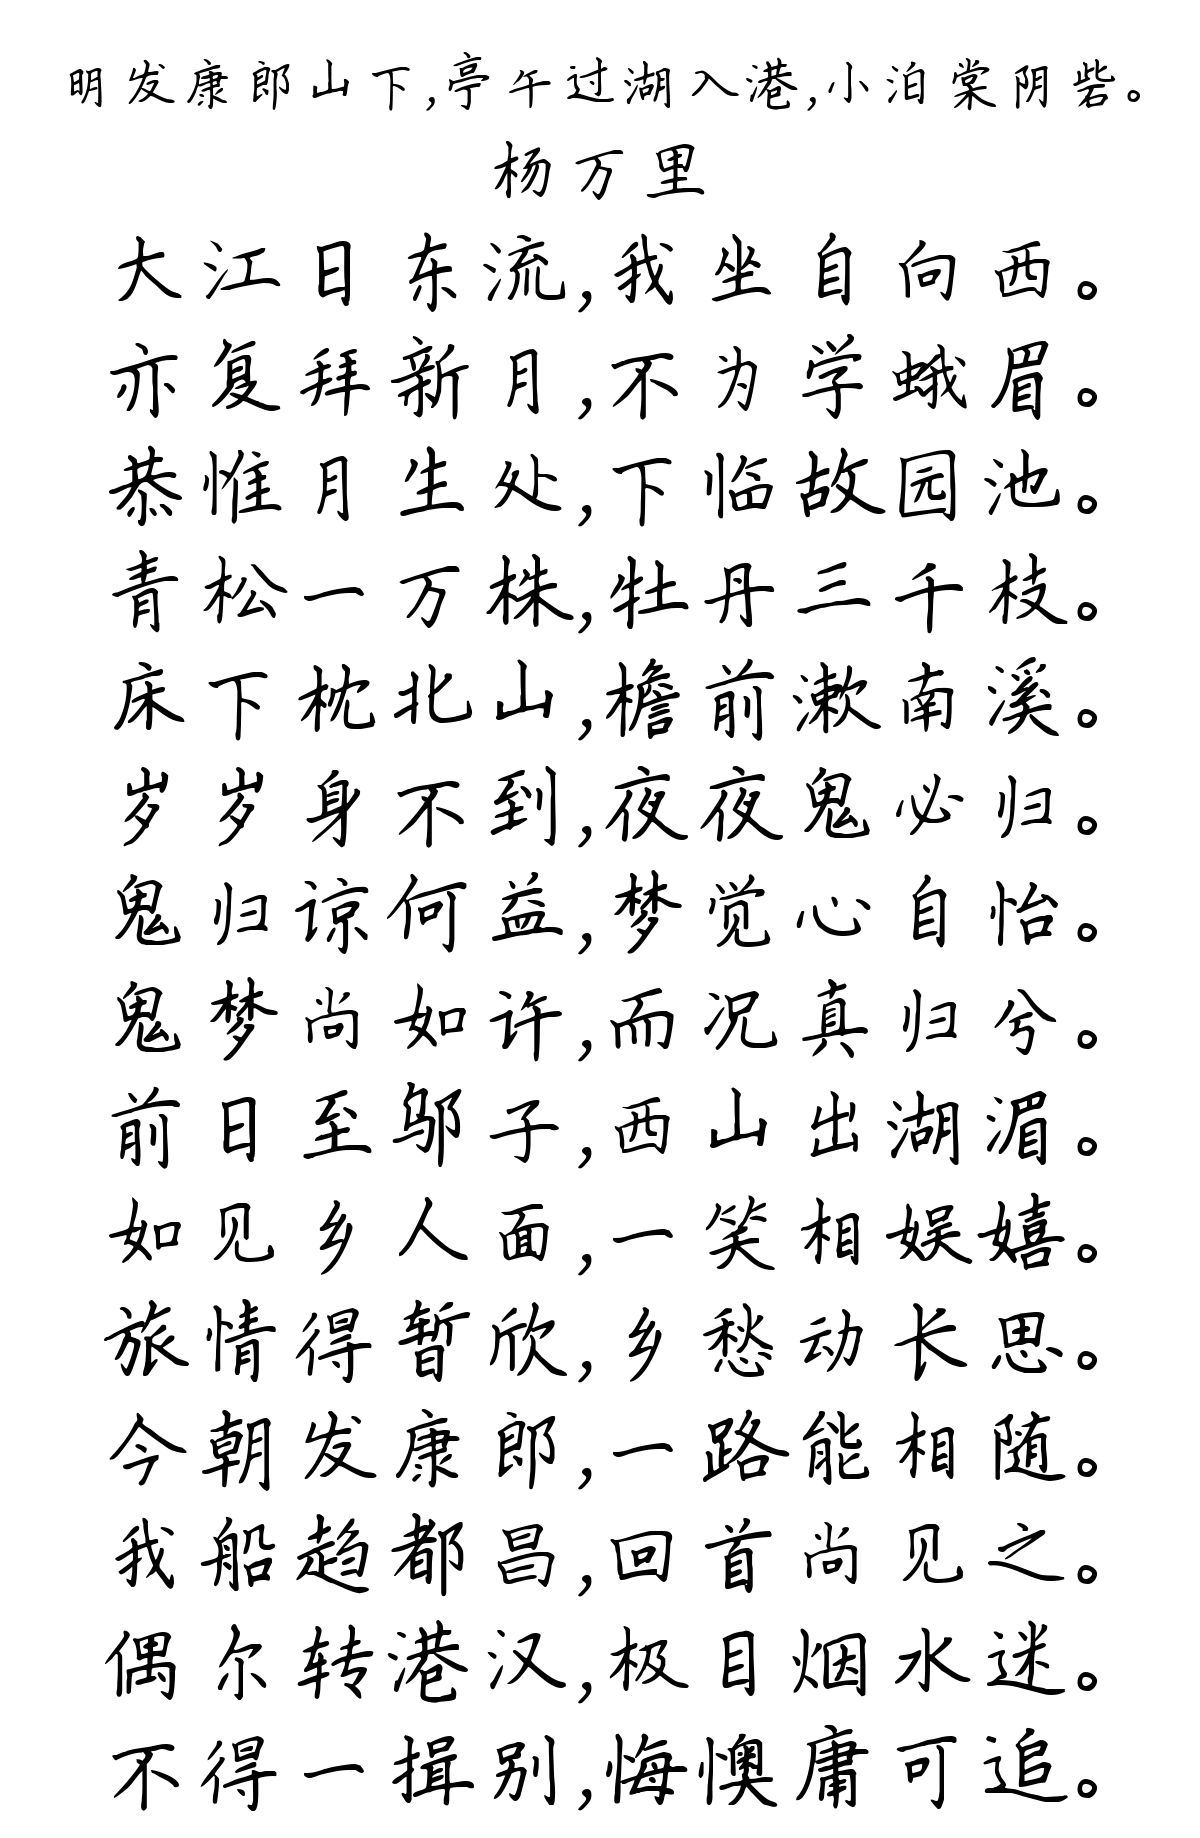 明发康郎山下,亭午过湖入港,小泊棠阴砦。
杨万里
大江日东流,我坐自向西。
亦复拜新月,不为学蛾眉。
恭惟月生处,下临故园池。
青松一万株,牡丹三千枝。
床下枕北山,檐前漱南溪。
岁岁身不到,夜夜鬼必归。
鬼归谅何益,梦觉心自怡。
鬼梦尚如许,而况真归兮。
前日至邬子,西山出湖湄。
如见乡人面,一笑相娱嬉。
旅情得暂欣,乡愁动长思。
今朝发康郎,一路能相随。
我船趋都昌,回首尚见之。
偶尔转港汊,极目烟水迷。
不得一揖别,悔懊庸可追。